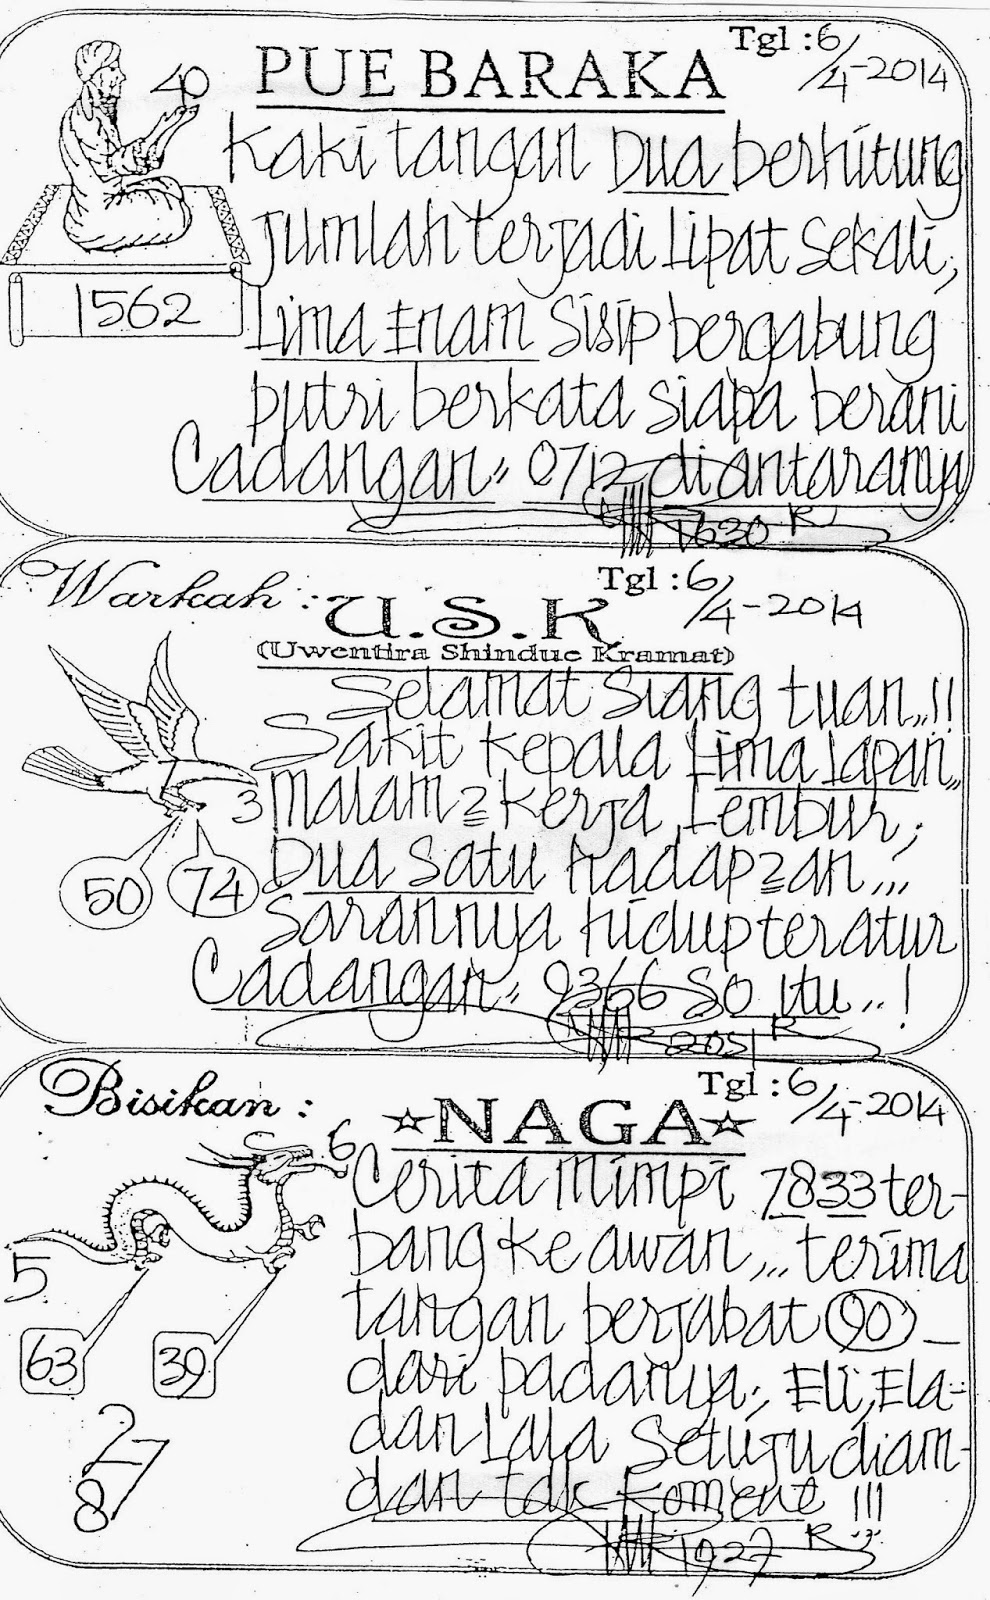 Tgl : 6/4-2014
PUE BARAKA
40
Kaki tangan Dua berhitung
jumlah terjadi Lipat Sekali,
1562
Lima Enam Sisip bergabung
putri berkata siapa berani
Cadangan = 0712 di antaranya
1630 R
Tgl : 6/4-2014
Warkah :
U.S.K
(Uwentira Shindue Kramat)
Selamat Siang tuan..!!
Sakit kepala Lima Lapan..
3
Malam2 kerja Lembur,
50
74
Dua Satu hadap2an...
Sarannya hidup teratur
Cadangan = 9366 SO Itu..!
2051 R
Tgl : 6/4-2014
Bisikan :
NAGA
6
Cerita Mimpi 7833 ter-
bang ke awan,.. terima
5
tangan berjabat 90 -
63
39
dari padanya., Eli, Ela-
dan Lala Setuju diam-
27
8
dan tak koment !!!
1927 R